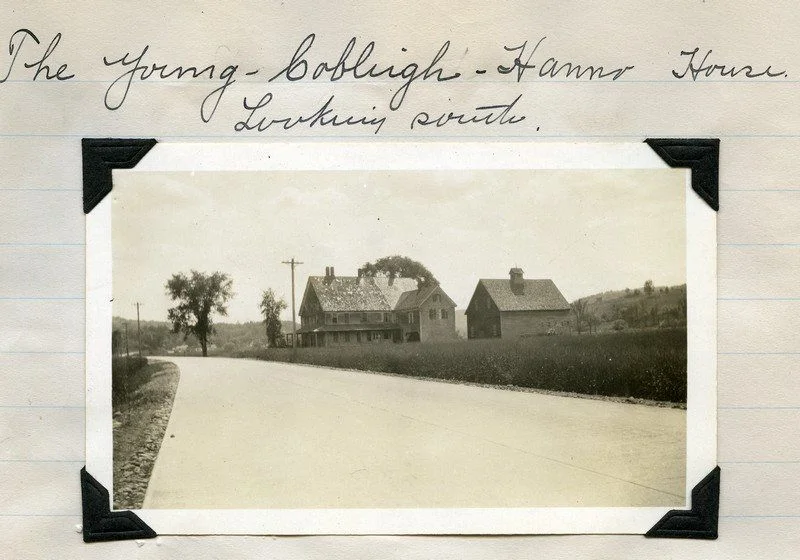 The Young-Cobleigh-Hanno House.
Looking south.